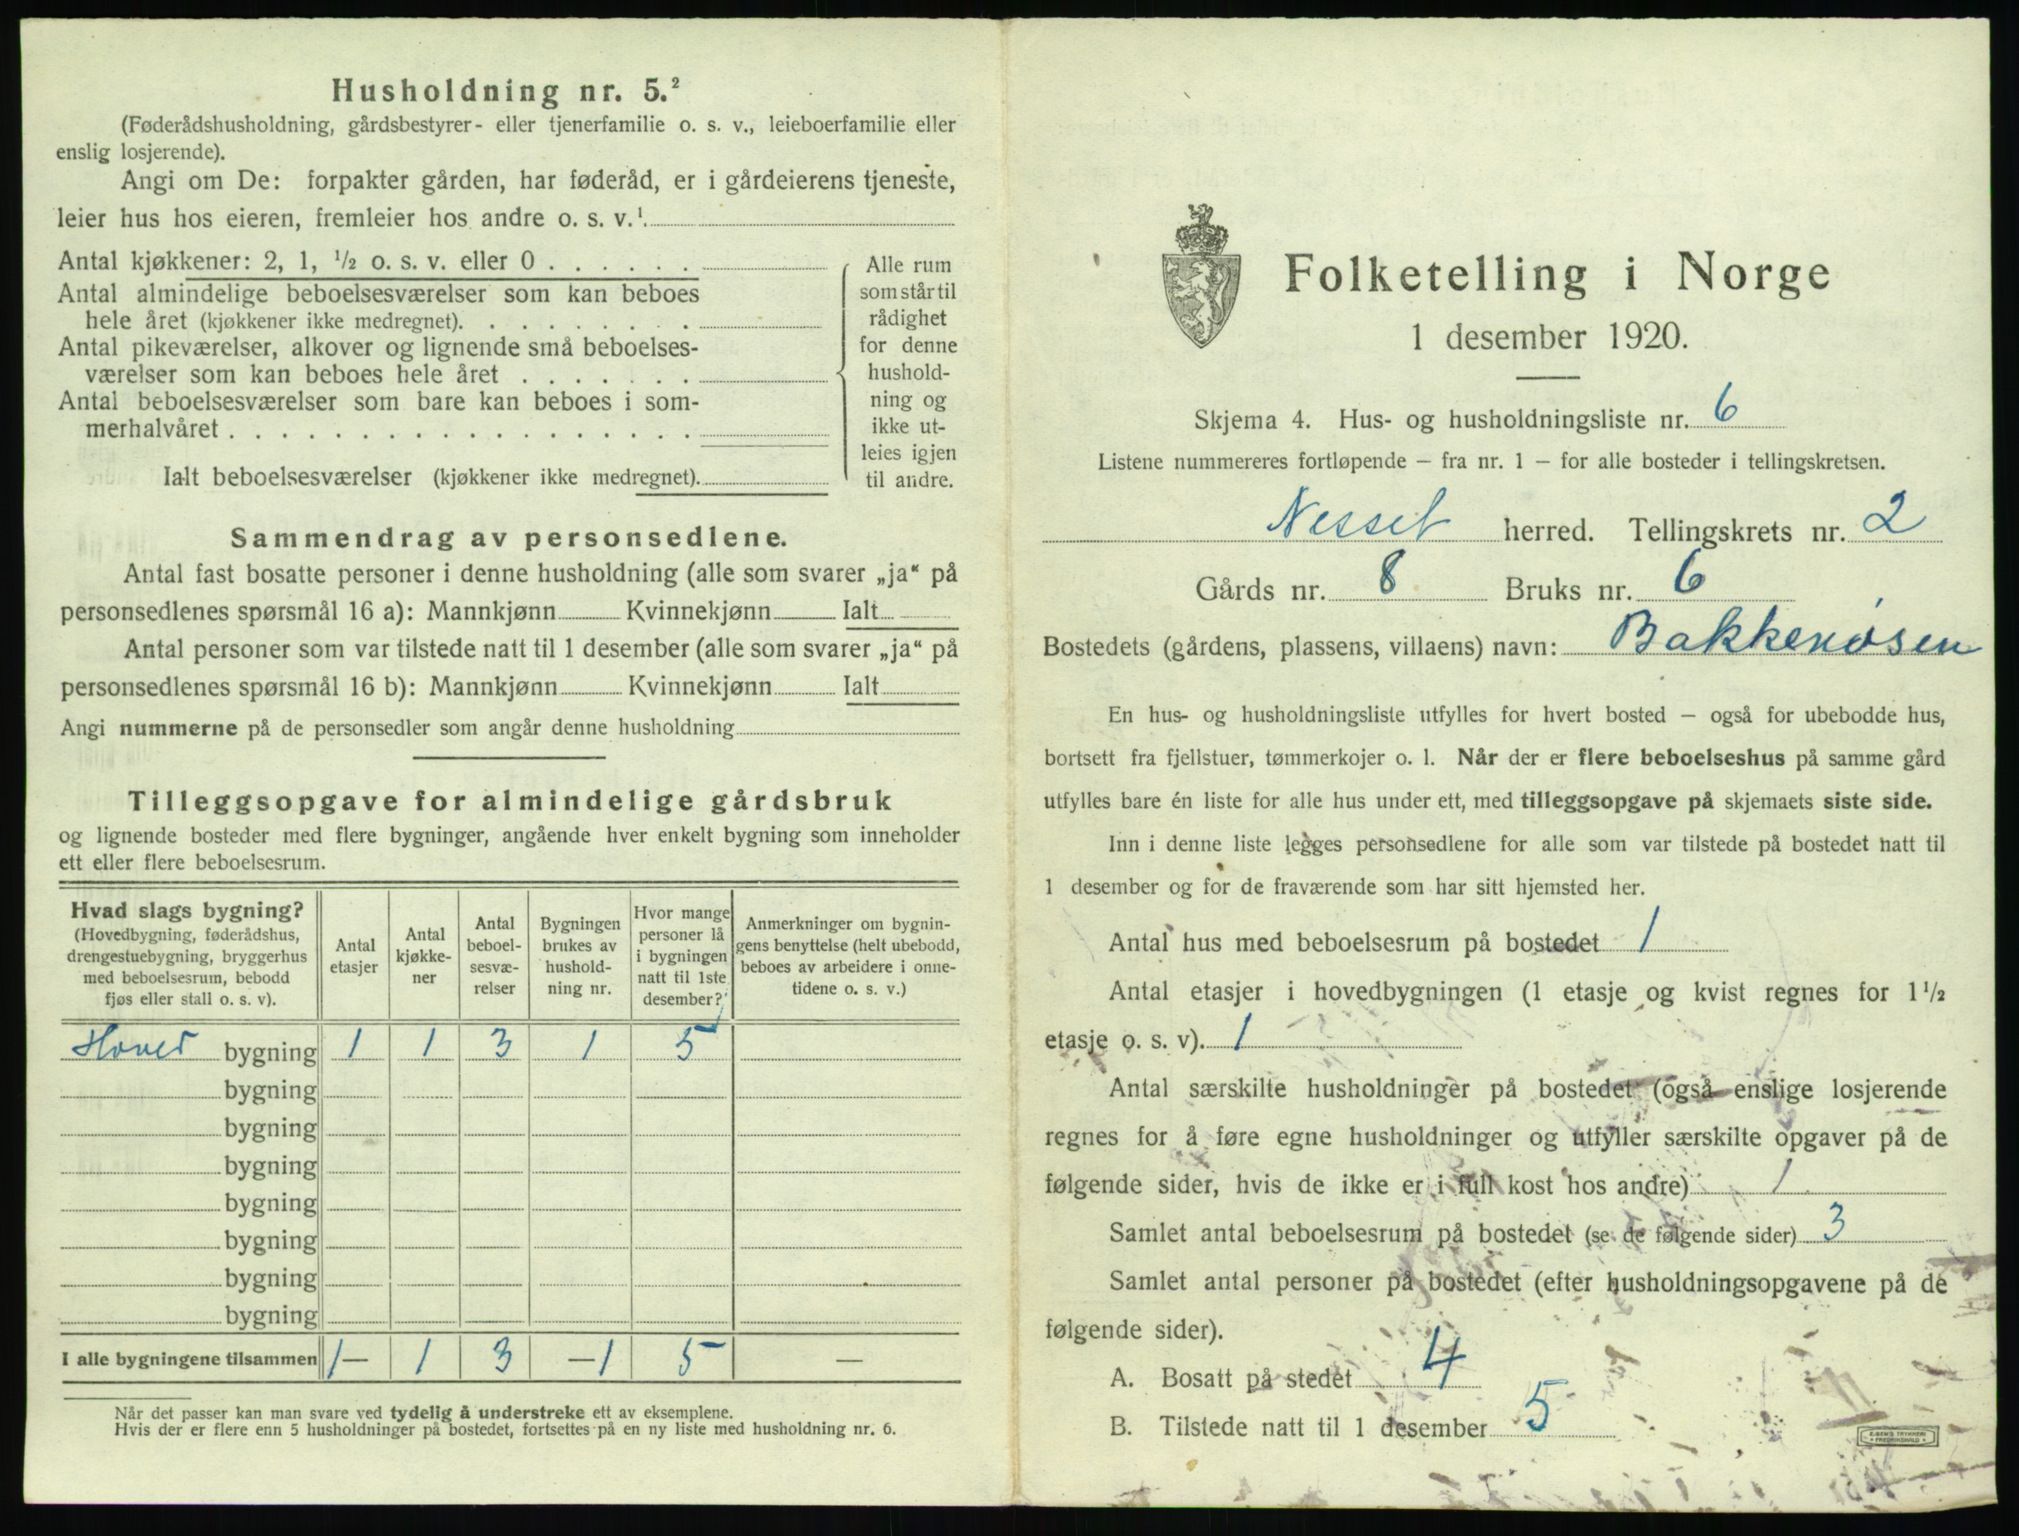 Husholdning nr. 5.²
(Føderådshusholdning, gårdsbestyrer- eller tjenerfamilie o. s. v., leieboerfamilie eller
enslig losjerende).
Angi om De: forpakter gården, har føderåd, er i gårdeierens tjeneste,
leier hus hos eieren, fremleier hos andre o. s. v.¹
Antal kjøkkener: 2, 1, ½ o. s. v. eller 0 . . . . . .
Antal almindelige beboelsesværelser som kan beboes
hele året (kjøkkener ikke medregnet). . . . . . . . .
Antal pikeværelser, alkover og lignende små beboelses-
værelser som kan beboes hele året . . . . . . .
Antal beboelsesværelser som bare kan beboes i som-
merhalvåret . . . . . . . . . . . . . . . . . .
Ialt beboelsesværelser (kjøkkener ikke medregnet).
Alle rum
som står til
rådighet
for denne
hushold-
ning og
ikke ut-
leies igjen
til andre.
Sammendrag av personsedlene.
Antal fast bosatte personer i denne husholdning (alle som svarer „ja“ på
personsedlenes spørsmål 16 a): Mannkjønn Kvinnekjønn Ialt
Antal personer som var tilstede natt til 1 desember (alle som svarer „ja“ på
personsedlenes spørsmål 16 b): Mannkjønn Kvinnekjønn Ialt
Angi nummerne på de personsedler som angår denne husholdning
Tilleggsopgave for almindelige gårdsbruk
og lignende bosteder med flere bygninger, angående hver enkelt bygning som inneholder
ett eller flere beboelsesrum.
Hvad slags bygning?
(Hovedbygning, føderådshus,
drengestuebygning, bryggerhus
med beboelsesrum, bebodd
fjøs eller stall o. s. v).
Antal
etasjer
Antal
kjøkke-
ner
Antal
beboel-
sesvæ-
relser
Bygningen
brukes av
hushold-
ning nr.
Hvor mange
personer lå
i bygningen
natt til 1ste
desember?
Anmerkninger om bygnin-
gens benyttelse (helt ubebodd,
beboes av arbeidere i onne-
tidene o. s. v.)
Hoved bygning 1 1 3 1 5
bygning
bygning
bygning
bygning
bygning
bygning
bygning
I alle bygningene tilsammen 1 — 1 3 — 1 5 —
Når det passer kan man svare ved tydelig å understreke ett av eksemplene.
Hvis der er flere enn 5 husholdninger på bostedet, fortsettes på en ny liste med husholdning nr. 6.
Folketelling i Norge
1 desember 1920.
Skjema 4. Hus- og husholdningsliste nr. 6
Listene nummereres fortløpende – fra nr. 1 – for alle bosteder i tellingskretsen.
Nesset herred. Tellingskrets nr. 2
Gårds nr. 8 Bruks nr. 6
Bostedets (gårdens, plassens, villaens) navn: Bakkenøsen
En hus- og husholdningsliste utfylles for hvert bosted – også for ubebodde hus,
bortsett fra fjellstuer, tømmerkojer o. l. Når der er flere beboelseshus på samme gård
utfylles bare én liste for alle hus under ett, med tilleggsopgave på skjemaets siste side.
Inn i denne liste legges personsedlene for alle som var tilstede på bostedet natt til
1 desember og for de fraværende som har sitt hjemsted her.
Antal hus med beboelsesrum på bostedet 1
Antal etasjer i hovedbygningen (1 etasje og kvist regnes for 1½
etasje o. s. v). 1
Antal særskilte husholdninger på bostedet (også enslige losjerende
regnes for å føre egne husholdninger og utfyller særskilte opgaver på de
følgende sider, hvis de ikke er i full kost hos andre) 1
Samlet antal beboelsesrum på bostedet (se de følgende sider) 3
Samlet antal personer på bostedet (efter husholdningsopgavene på de
følgende sider).
A. Bosatt på stedet 4
B. Tilstede natt til 1 desember 5